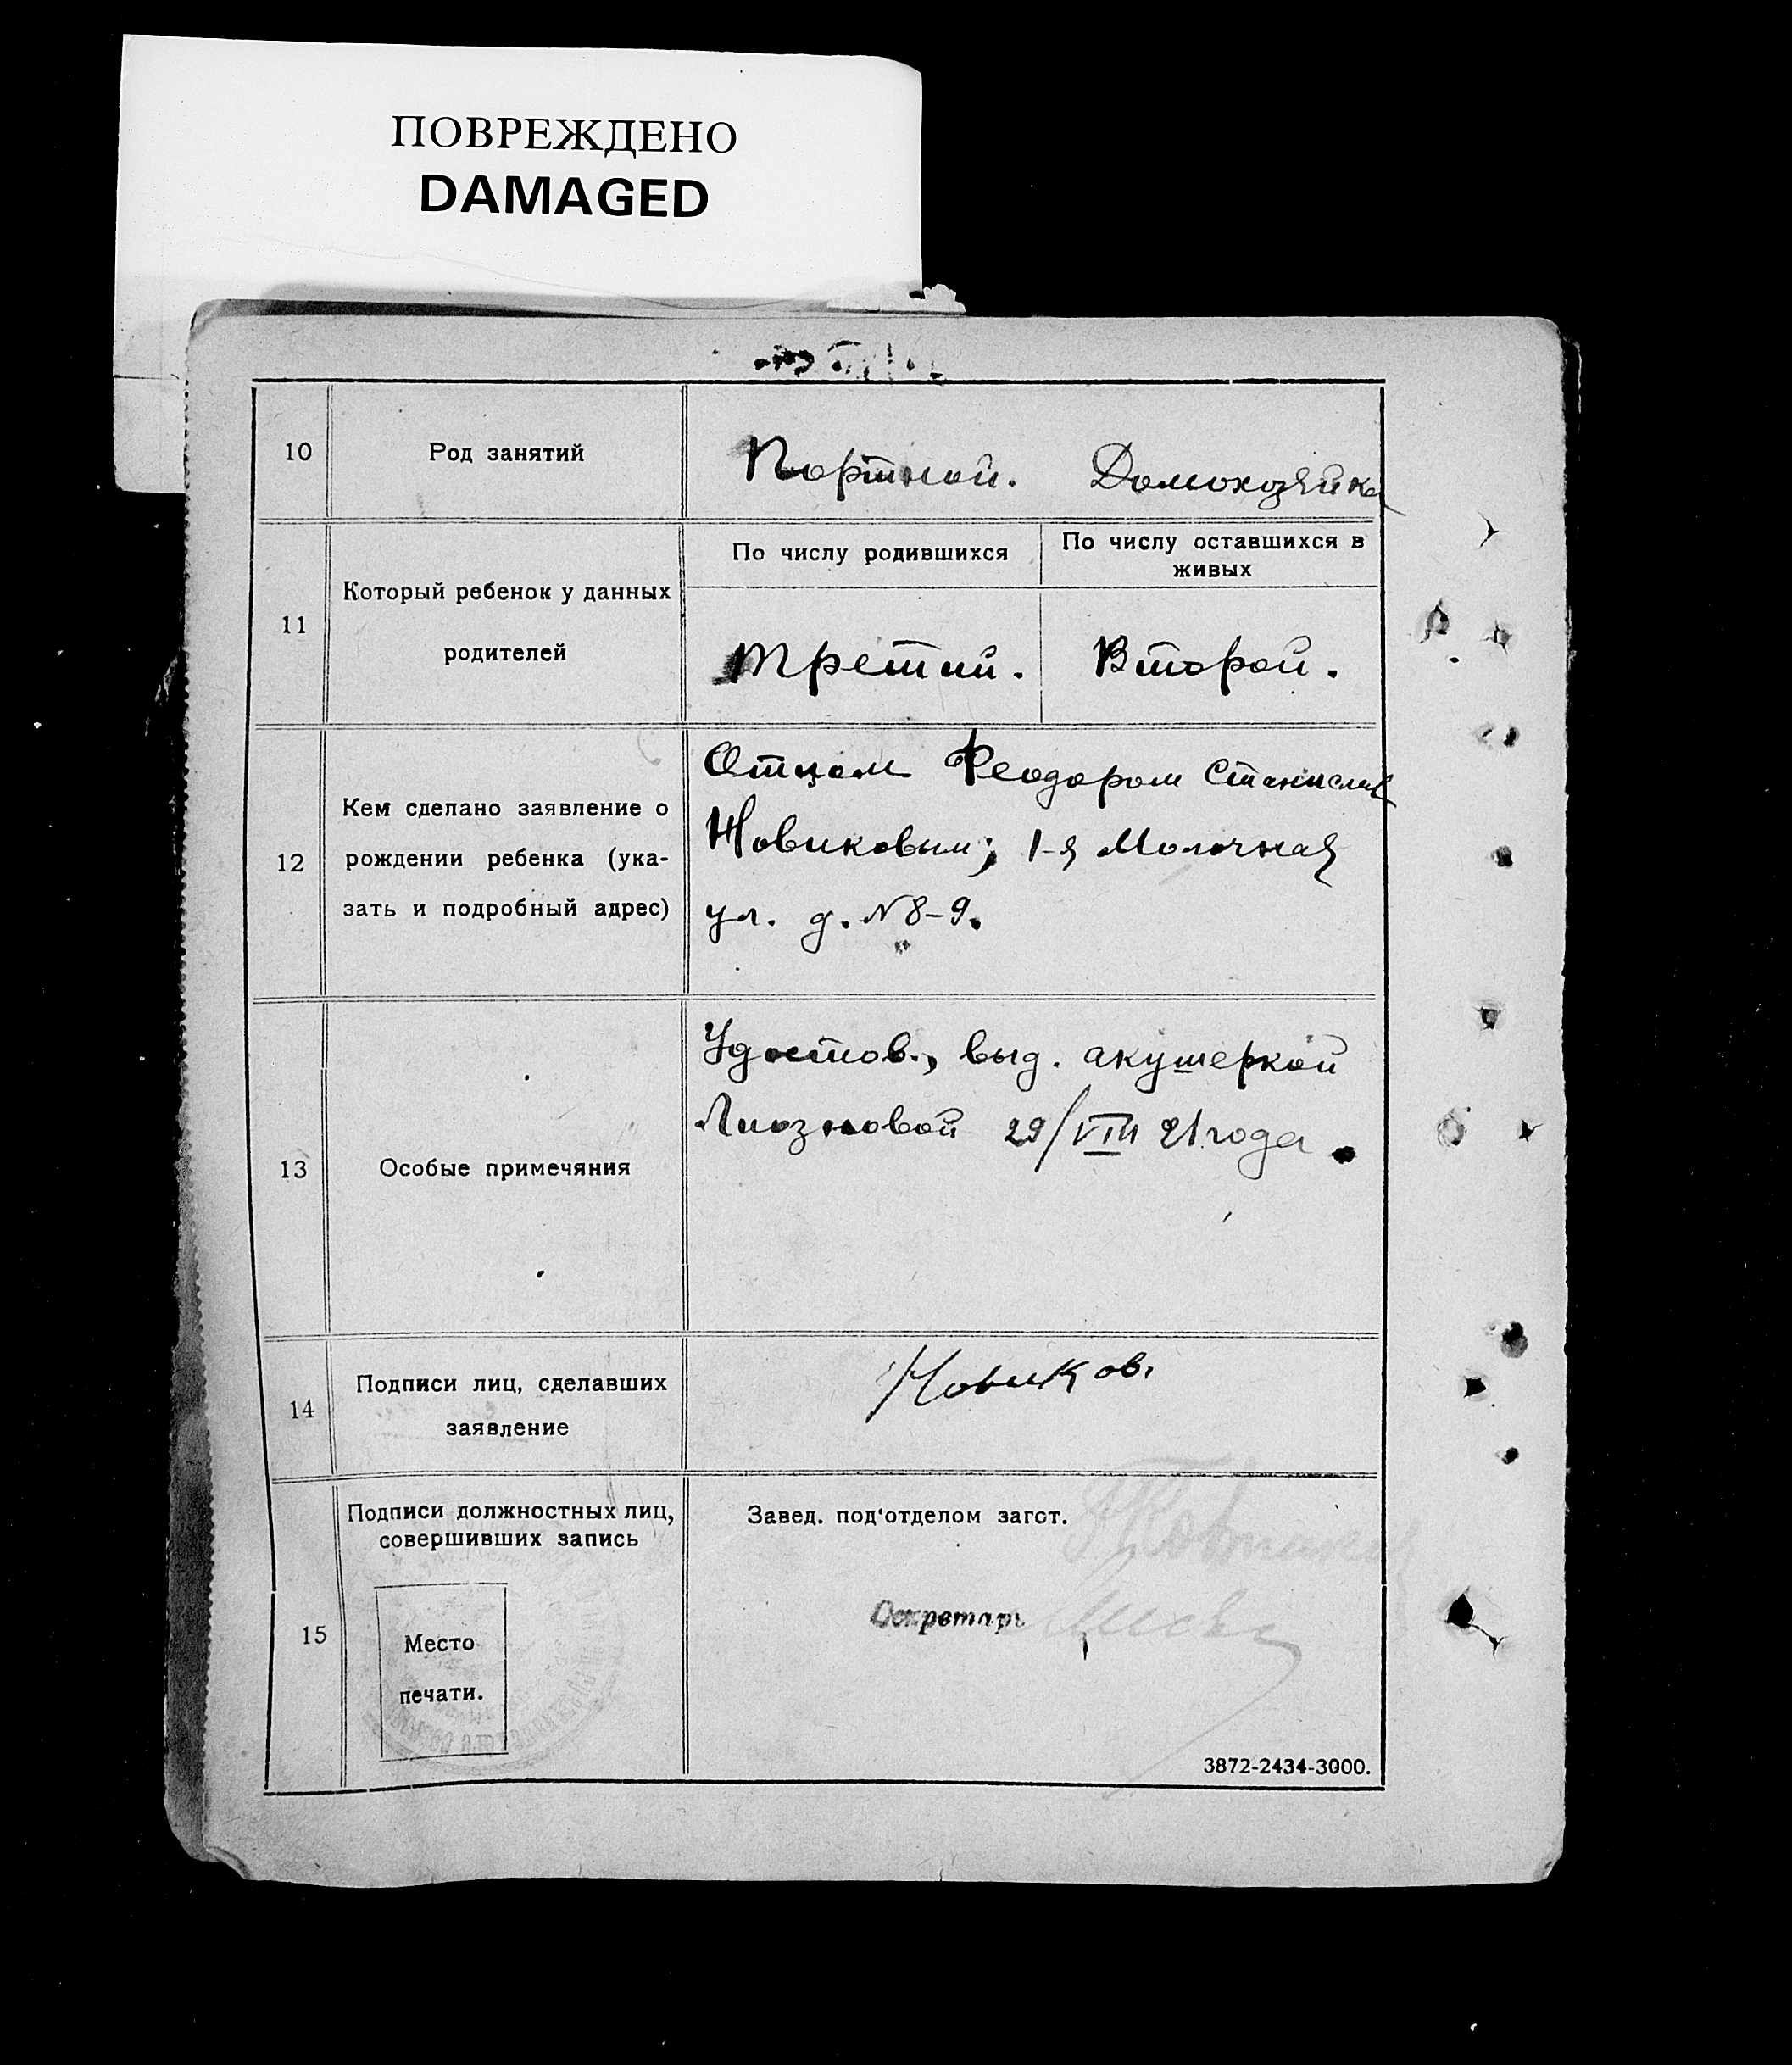 ПОВРЕЖДЕНО
DAMAGED
10
Род занятий
Портной. Домохозяйка
11
Который ребенок у данных
родителей
По числу родившихся
По числу оставшихся в
живых
Третий.
Второй.
12
Кем сделано заявление о
рождении ребенка (ука-
зать и подробный адрес)
Отцом Феодором Станислав
Новиковым; 1-я Молочная
ул. д. № 8-9.
13
Особые примечяния
Удостов., выд. акушеркой
Лиозновой 29/VIII 21 года.
14
Подписи лиц, сделавших
заявление
Новиков.
15
Подписи должностных лиц,
совершивших запись
Место
печати.
Завед. под'отделом загст.
Секретарь
3872-2434-3000.